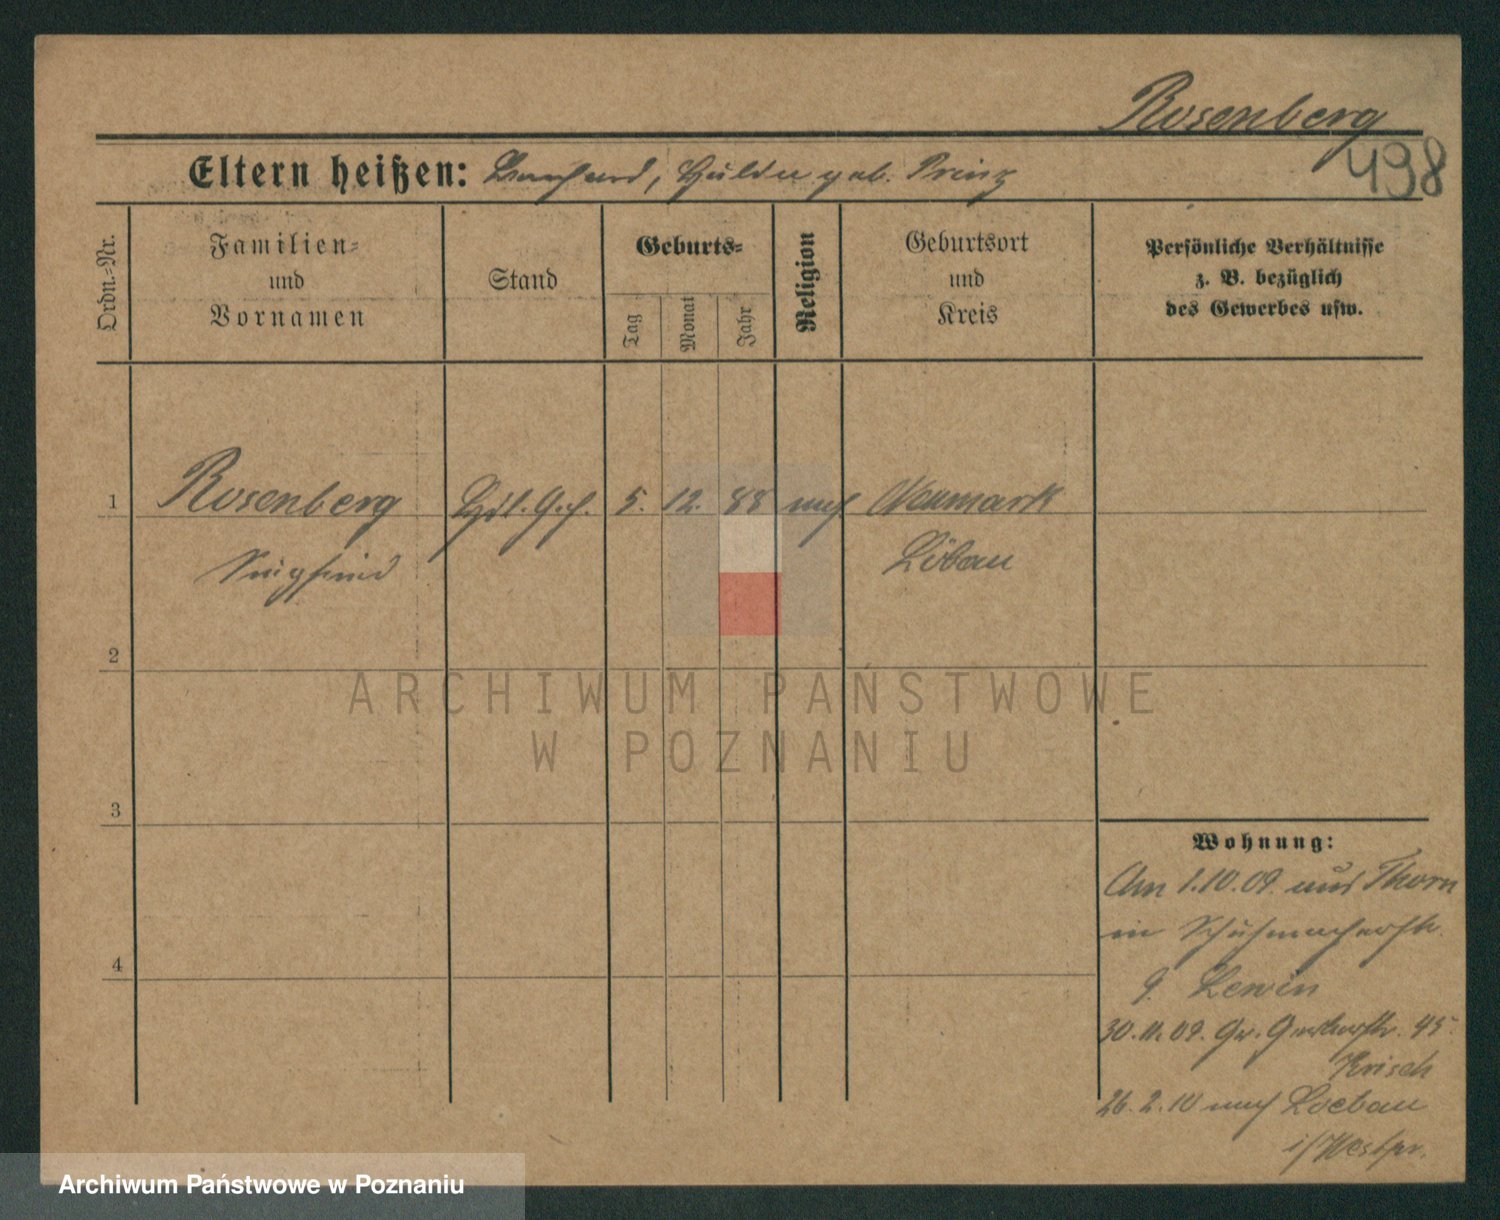 Rosenberg
498
Eltern heißen: Bernhard, Hulda geb. Prinz
Ordn.-Nr.
Familien-
und
Vornamen
Stand
Geburts-
Tag
Monat
Jahr
Religion
Geburtsort
und
Kreis
Persönliche Verhältnisse
z. B. bezüglich
des Gewerbes usw.
1
Rosenberg Hdl. Geh. 5. 12. 88 Neumark
Siegfried Löbau
2
3
4
Wohnung:
Am 1.10.09. aus Thorn
in Schuhmacherstr.
9. Lewin
30.11.09. Gr. Gerberstr. 45
Krisch
26.2.10 nach Loebau
i/Westpr.
ARCHIWUM PAŃSTWOWE
W POZNANIU
Archiwum Państwowe w Poznaniu